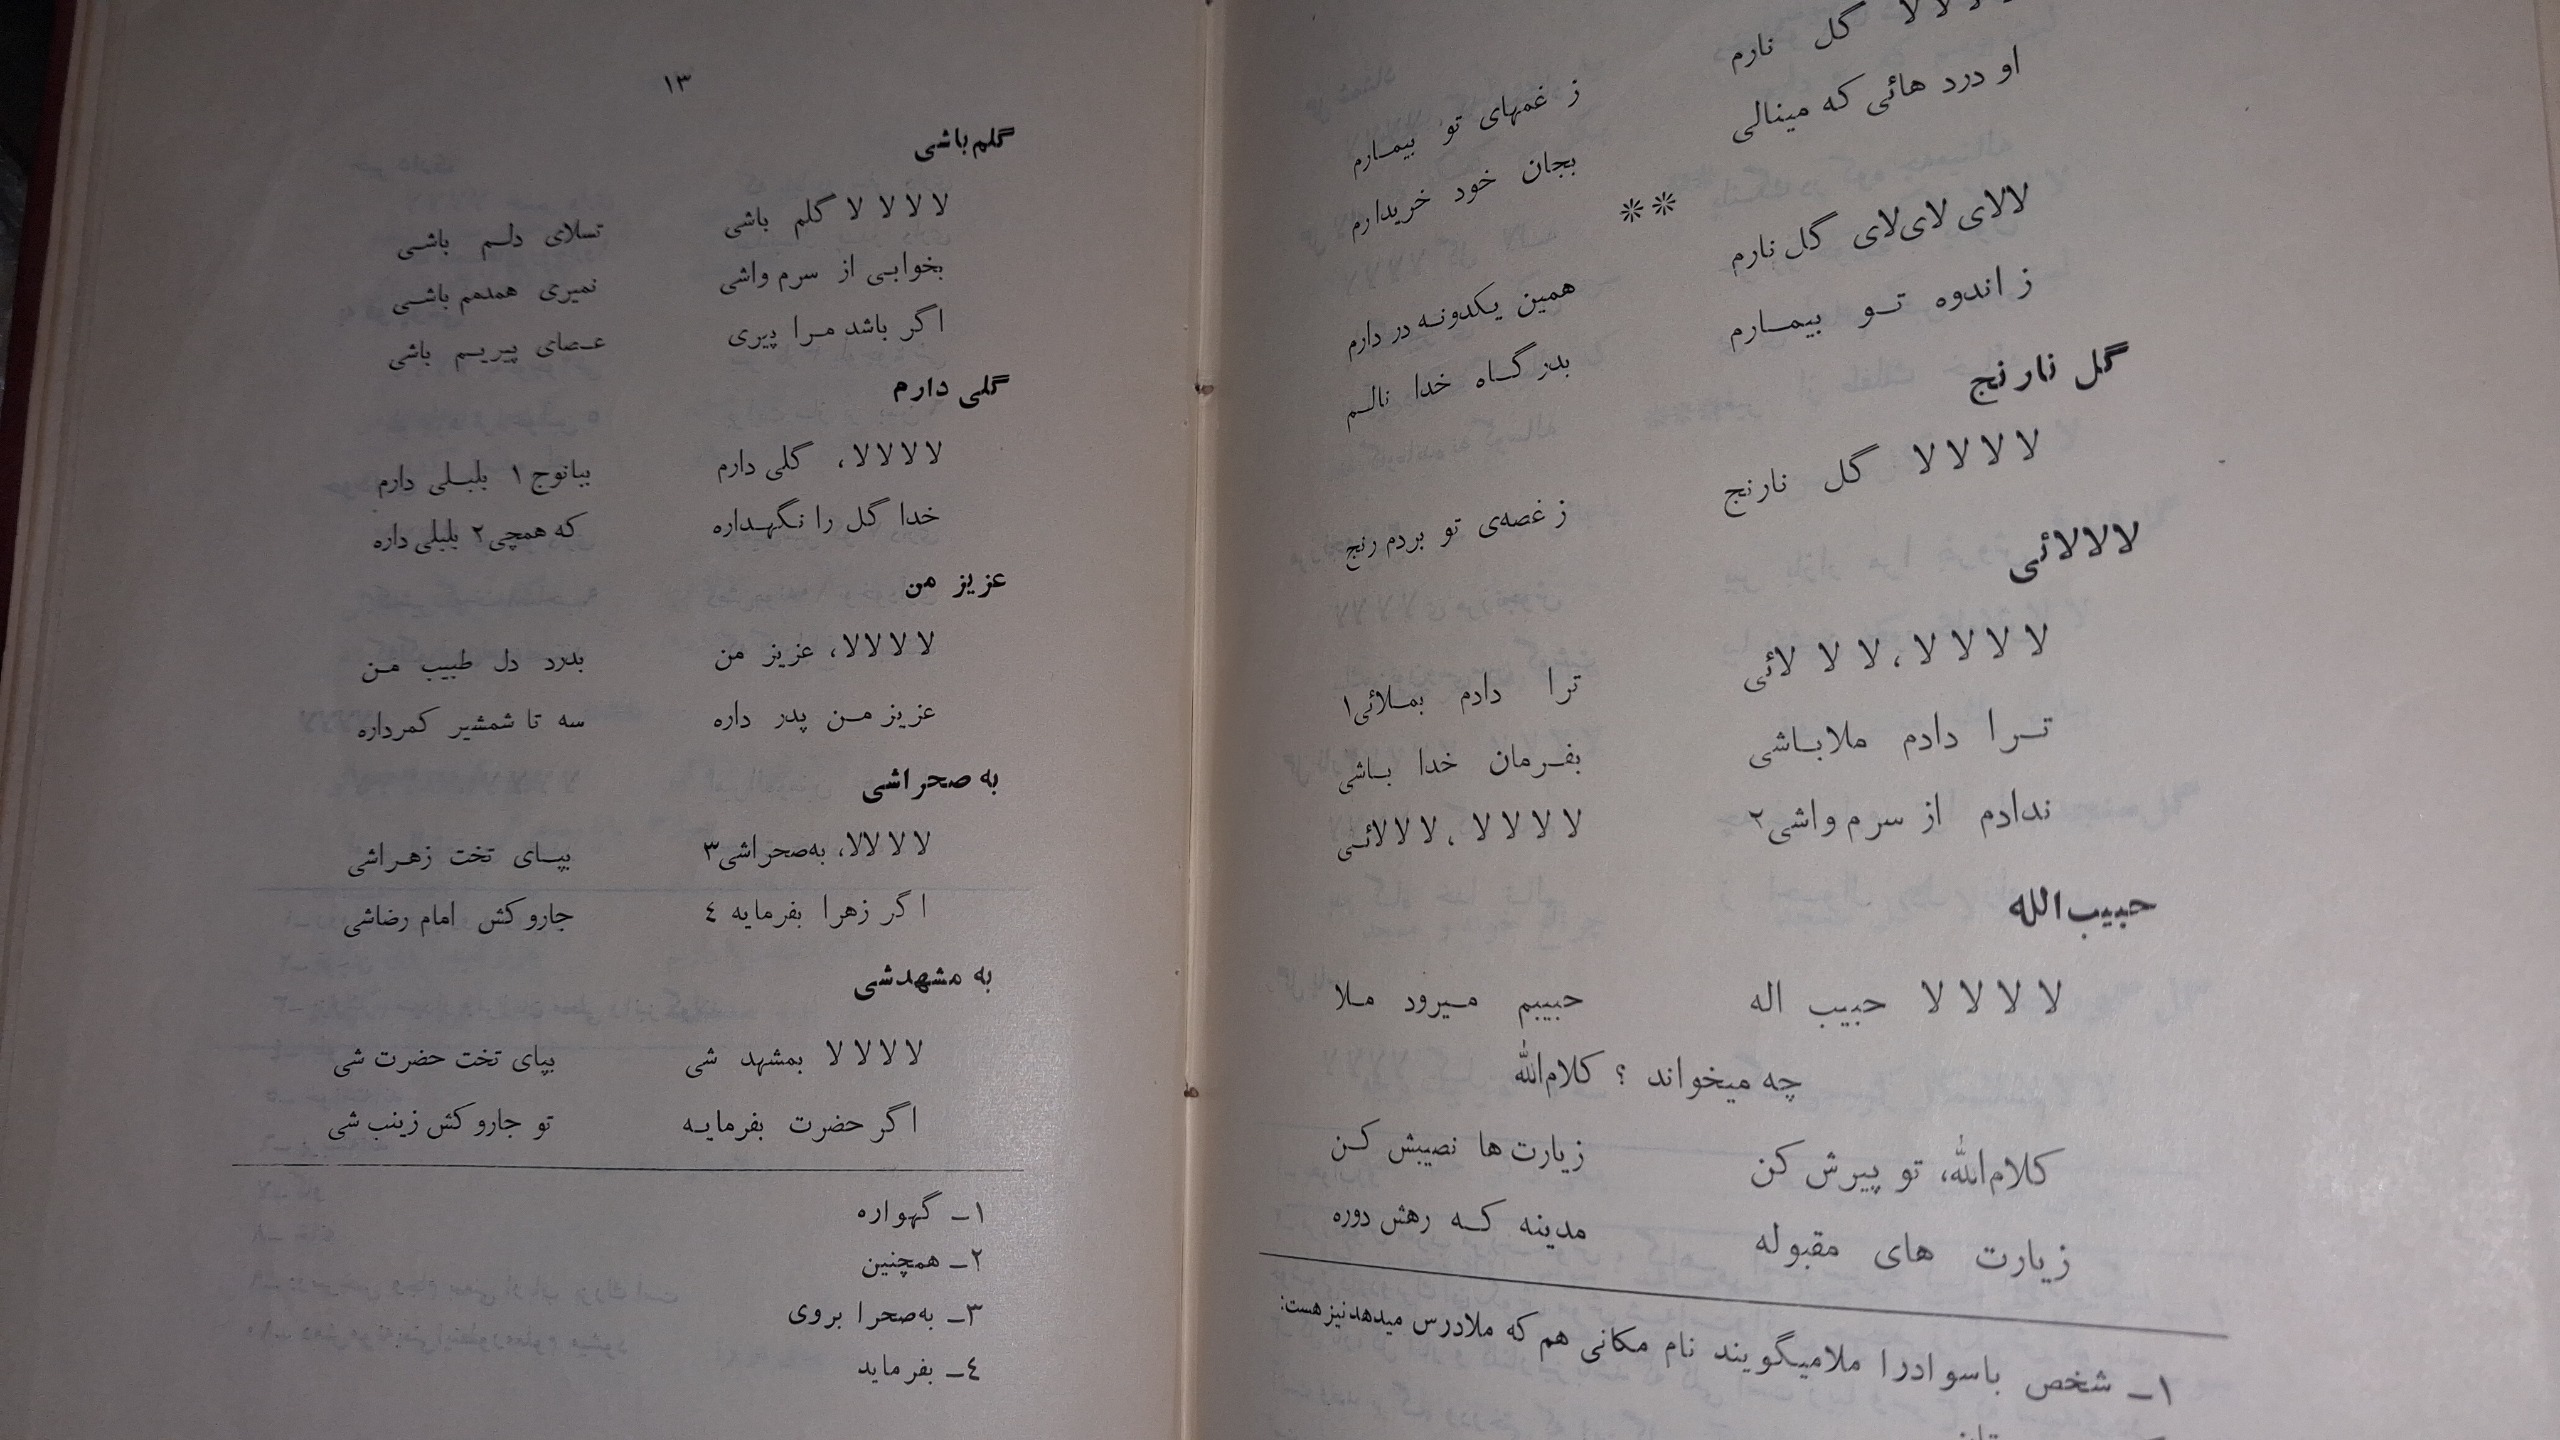 لا لا لا لا گل نارم ز غمهای تو بیمـارم
او درد هائی که مینالی بجان خود خریدارم
**
لالای لای‌لای گل نارم همین یـکدونـه در دارم
ز اندوه تـو بیمـارم بدرگـاه خدا نالـم
گل نارنج
لا لا لا لا گل نارنج ز غصه‌ی تو بردم رنج
لالالائی
لا لا لا لا ، لا لا لائی ترا دادم بمـلائی۱
تـرا دادم ملابـاشی بفـرمان خدا بـاشی
ندادم از سرم واشی۲ لا لا لا لا ، لا لا لائی
حبیب‌الله
لا لا لا لا حبیب اله حبیبم میرود ملا
چه میخواند ؟ کلام‌الله
کلام‌الله، تو پیرش کن زیارت ها نصیبش کـن
زیارت های مقبوله مدینه کـه رهش دوره
۱ـ شخص باسوادرا ملامیگویند نام مکانی هم که ملادرس میدهد نیز هست:
۱۳
گلم باشی
لا لا لا لا گلم باشی تسلای دلـم باشی
بخوابی از سرم واشی نمیری همدمم باشـی
اگر باشد مـرا پیری عـصای پیریـم باشی
گلی دارم
لا لا لا لا، گلی دارم ببانوج ۱ بلبـلی دارم
خدا گل را نگهـداره که همچی۲ بلبلی داره
عزیز من
لا لا لا لا، عزیز من بدرد دل طبیب مـن
عزیز مـن پدر داره سه تا شمشیر کمرداره
به صحراشی
لا لا لا لا، به‌صحراشی۳ بپـای تخت زهـراشی
اگر زهرا بفرمایه ٤ جاروکش امام رضاشی
به مشهدشی
لا لا لا لا بمشهد شی بپای تخت حضرت شی
اگر حضرت بفرمایـه تو جاروکش زینب شی
۱ـ گهواره
۲ـ همچنین
۳ـ به‌صحرا بروی
٤ـ بفرماید